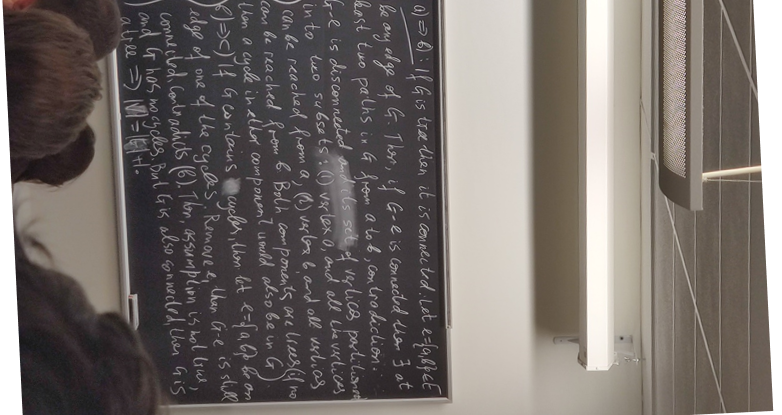 a) => b): If G is tree then it is connected. Let e={a,b}∈E
be any edge of G. Then, if G-e is connected then ∃ at
least two paths in G from a to b, contradiction.
G-e is disconnected and its set of vertices partitioned
into two subsets: (1) vertex a and all the vertices
can be reached from a, (2) vertex b and all vertices
can be reached from b. Both components are trees (if no
then a cycle in either component would also be in G)
b) => c) If G contains cycles, then let e={a,b} be an
edge of one of the cycles. Remove e, then G-e is still
connected. Contradicts (b). Then, assumption is not true,
and G has no cycles. But G is also connected, then G is
a tree => |V|=|E|+1.